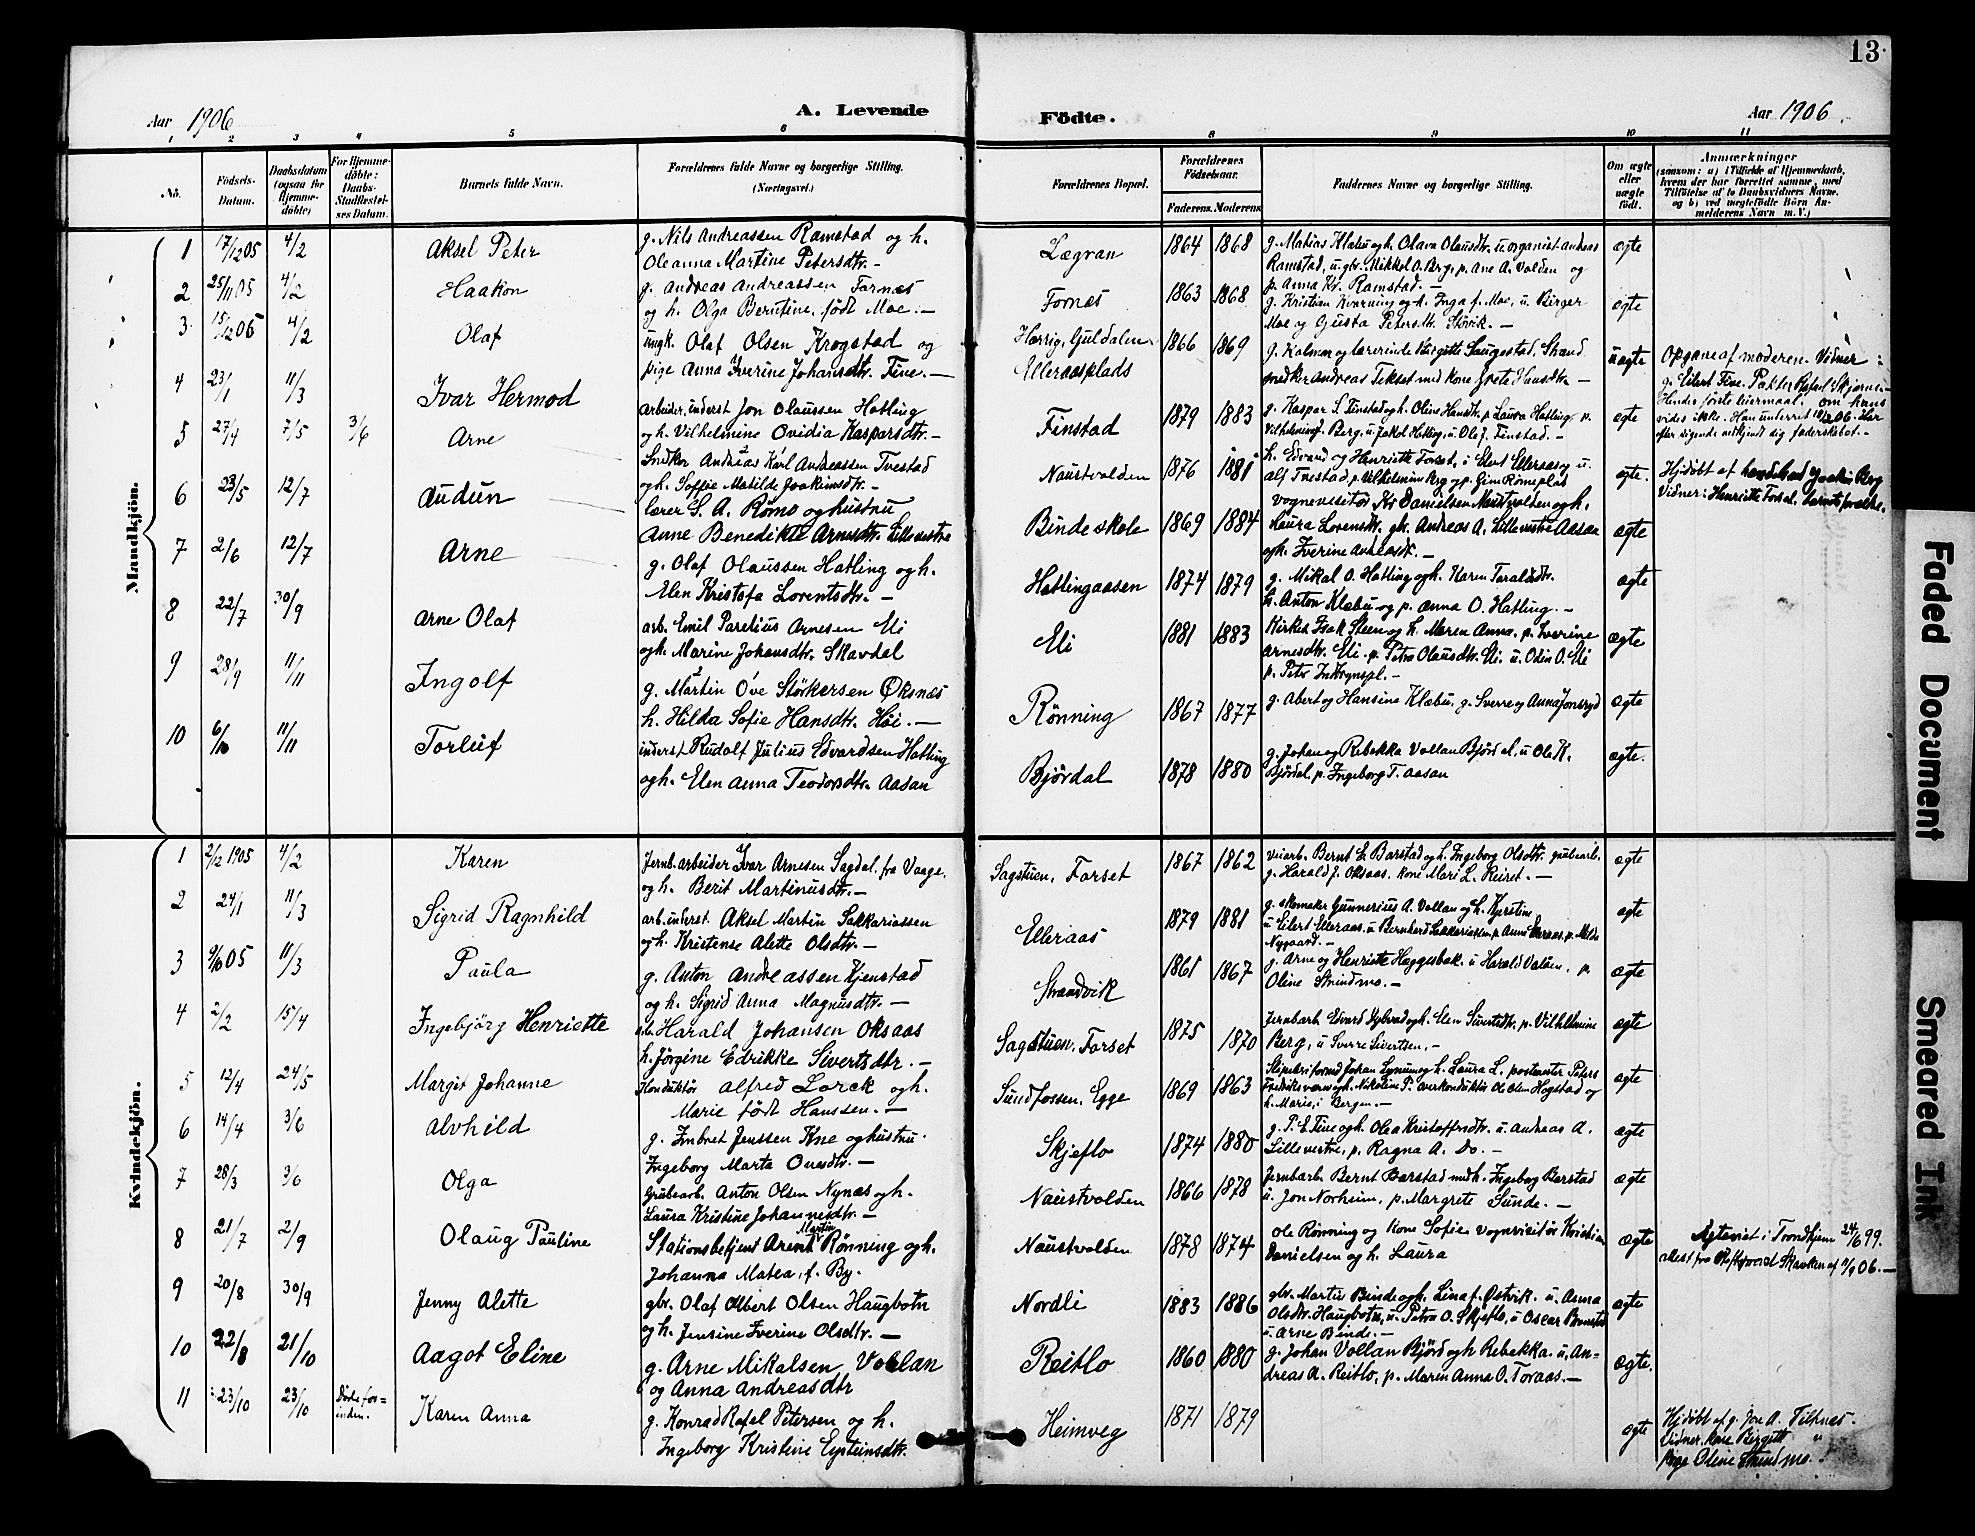 13.
Aar 1906
A. Levende
Födte.
Aar 1906.
1 2 3 4 5 6 8 9 10 11
No.
Födsels-Datum.
Daabsdatum (ogsaa for Hjemme-döbte)
For Hjemme-döbte: Daabs-Stadfæstel-ses Datum.
Barnets fulde Navn.
Forældrenes fulde Navne og borgerlige Stilling. (Næringsvei.)
Forældrenes Bopæl.
Forældrenes Födselsaar.
Faderens. Moderens
Faddernes Navne og borgerlige Stilling.
Om ægte eller uægte födt.
Anmærkninger
(saasom: a) i Tilfælde af Hjemmedaab, hvem der har forrettet samme, med Tilföielse af to Daabsvidners Navne, og b) ved uægtefödte Börn An-melderens Navn m. V.)
Mandkjön.
1 17/12 05 4/2 Aksel Peter
g. Nils Andreassen Ramstad og h.
Oleanna Martine Petersdtr. —
Lægran 1864 1868
g. Matias Klæbu og h. Olava Olausdtr. u. organist Andreas
Ramstad, u. gbr. Mikkol O. Berg, p. Ane A. Valden og
p. Anna Kr. Ramstad. —
ægte
2 25/11 05 4/2 Haakon
g. Andreas Andreassen Fornæs
og h. Olga Berntine, født Moe. —
Fornæs 1863 1868
g. Kristian Kverning og h. Inga f. Moe, u. Birger
Moe og Gusta Petersdtr. Støvik. —
ægte
3 15/12 05 4/2 Olaf
ungk. Olaf Olsen Krogstad og
pige Anna Iverine Johansdtr. Fine. —
Hørrig, Guldalen
Elleraasplads
1866 1869
g. Kolmar og lærerinde Birgitte Saugestad, Strand
snedker Andreas Tekset med kone Grete Hansdtr. —
uægte
Opgave af moderen. Vidner:
g. Eilert Fine. Pakter Rafael Skjerve —
Hendes første leiermaal, om hans
vides ikke. Han underret 10/2 06. Har
efter sigende vedkjendt sig faderskabet. —
4 23/1 11/3 Ivar Hermod
arbeider, inderst Jon Olaussen Hatling
og h. Vilhelmine Ovidia Kaspersdtr. —
Finstad 1879 1883
g. Kaspar S. Finstad og h. Oline Hansdtr. p. Laura Hatling, p.
Vilhelmine J. Berg, u. Jakob Hatling, u. Ole J. Finstad. —
ægte
5 27/4 7/5 3/6 Arne
Snedker Andreas Karl Andreassen Tvestad
og h. Soffie Matilde Joakimsdtr. —
Naustvolden 1876 1881
h. Edvard og Henriette Forset, i Elert Elleraas og u.
Alf Tvestad, p. Vilhelmine Berg og p. Gine Rømeplas
ægte.
Hjdøbt af Jakob Berg
Vidner: Henriette Forset,
6 23/5 12/7 Audun
lærer S. A. Rømo og hustru
Anne Benedikte Arnesdtr. Lillevestre
Binde skole 1869 1884
Vognvisitør Kr Danielsen Naustvolden og h.
Laura Lorensdtr. gk. Andreas A. Lillevestre Aasan
og h. Iverine Andreasdtr. —
ægte
7 2/6 12/7 Arne
g. Olaf Olaussen Hatling og h.
Elen Kristofa Lorentsdtr. —
Hatlingaasen 1874 1879
g. Mikal O. Hatling og h. Karen Taraldsdtr.
h. Anton Klæbu og p. Anna O. Hatling. —
ægte
8 22/7 30/9 Arne Olaf
arb. Emil Parelius Arnesen Eli
og h. Marine Johansdtr. Skavdal
Eli 1881 1883
Kirkes. Isak Steen og h. Maren Anna, p. Iverine
Arnesdtr. Eli. p. Petra Olausdtr. Eli. u. Odin O. Eli
p. Petr
ægte
9 28/9 11/11 Ingolf
g. Martin Ove Størkersen Øksnes
h. Hilda Sofie Hansdtr. Høi. —
Rønning 1867 1877
g. Abert og Hansine Klæbu. g. Sverre og Anna Jonsryd
ægte
10 6/10 11/11 Torleif
inderst Rudolf Julius Edvardsen Hatling
og h. Elen Anna Teodorsdtr. Aasan
Bjørdal 1878 1880
g. Johan og Rebekka Vollan Bjørdal, u Ole K.
Bjørdal, p. Ingeborg T. Aasan
ægte.
Kvindekjön.
1 2/12 1905 4/2 Karen
Jernb.arbeider Ivar Arnesen Sagdal. fra Vaage.
og h. Berit Martinusdtr. —
Sagstuen, Forset 1867 1862
veiarb. Bernt E. Barstad og h. Ingeborg Olsdtr. grubearb.
g. Harald J. Oksaas. kone Mari L. Reiret. —
ægte
2 24/1 11/3 Sigrid Ragnhild
arb. inderst. Aksel Martin Sakkariassen
og h. Kristense Alette Olsdtr. —
Elleraas 1879 1881
g. skomaker Gunnerius A. Vollan og h. Kjerstine
u. Eilert Elleraas. u. Bernhard Sakkariassen, p. Anna Elleraas, p. Milda
Nygaard. —
ægte
3 9/10 05 11/3 Paula
g. Anton Andreassen Kjenstad
og h. Sigrid Anna Magnusdtr. —
Strandvik 1861 1867
g. Arne og Henriette Hæggesbak. u Harald Valøen, p.
Oline Strindmo. —
ægte
4 2/2 15/4 Ingebjørg Henriette
arb. Harald Johansen Oksaas
h. Jørgine Edrikke Sivertsdtr. —
Sagstuen, Forset 1875 1870
Jernbarb. Edvard og h. Elen Sivertsdtr. p. Vilhelmine
Berg, u Sverre Sivertsen, —
ægte
5 12/4 24/5 Margit Johanne
Konduktør Alfred Lorck og h.
Marie født Hanssen. —
Sundfossen, Egge 1869 1863
Johan Lynum og h. Laura L. Peters
og h. Nikoline P. overkonduktør Ole Olen Hogstad og
h. Marie, i Bergen. —
ægte
6 14/4 3/6 Alvhild
g. Embret Jenssen Kne og hustru
Ingeborg Marta Ovesdtr. —
Skjeflo 1874 1880
g. P. E. Fine og h. Olea Kristoffersdtr. u. Andreas A.
Lillevestre, p. Ragna A. Do. —
ægte
7 28/3 3/6 Olga
Grubearb. Anton Olsen Nynæs og h.
Laura Kristine Johannesdtr. —
Naustvolden 1866 1878
Jernbarb. Bernt Barstad med h. Ingeborg Barstad
u. Jon Norheim, p. Margrete Sunde. —
ægte
8 21/7 2/9 Olaug Pauline
Stationsbetjent Arent Martin Rønning og h.
Johanna Matea, f. By.
Naustvolden 1878 1874
Ole Rønning og kone Sofie. Vognvisitør Kristian
Danielsen og h. Laura
ægte
Ægteviet i Trondhjem 24/6 99.
Attest fra Skanken af 11/9 06. —
9 20/8 30/9 Jenny Alette
gbr. Olaf Albert Olsen Haugbotn
og h. Jensine Iverine Olsdtr. —
Nordli 1883 1886
gbr. Martin Binde og h. Lina f. Østvik. u. Anna
Olsdtr. Haugbotn, u. Petra O. Skjeflo, u Oscar
u. Arne Binde. —
ægte
10 22/8 21/10 Aagot Eline
g. Arne Mikalsen Vollan
og Anna Andreasdtr
Reitlo 1860 1880
g. Johan Vollan Bjørd og h Rebekka. u. An-
dreas A. Reitlo, p. Maren Anna O. Toraas. —
ægte.
11 23/10 23/10 Døde for-
inden.
Karen Anna
g. Konrad Rafal Petersen og h.
Ingeborg Kristine Eysteinsdtr.
Heimveg 1871 1879
ægte
Hjdøbt af g. Jon A. Tilknes.
Vidner. kone Birgitt "
pige Oline Strindmo. —
Faded Document
Smeared Ink